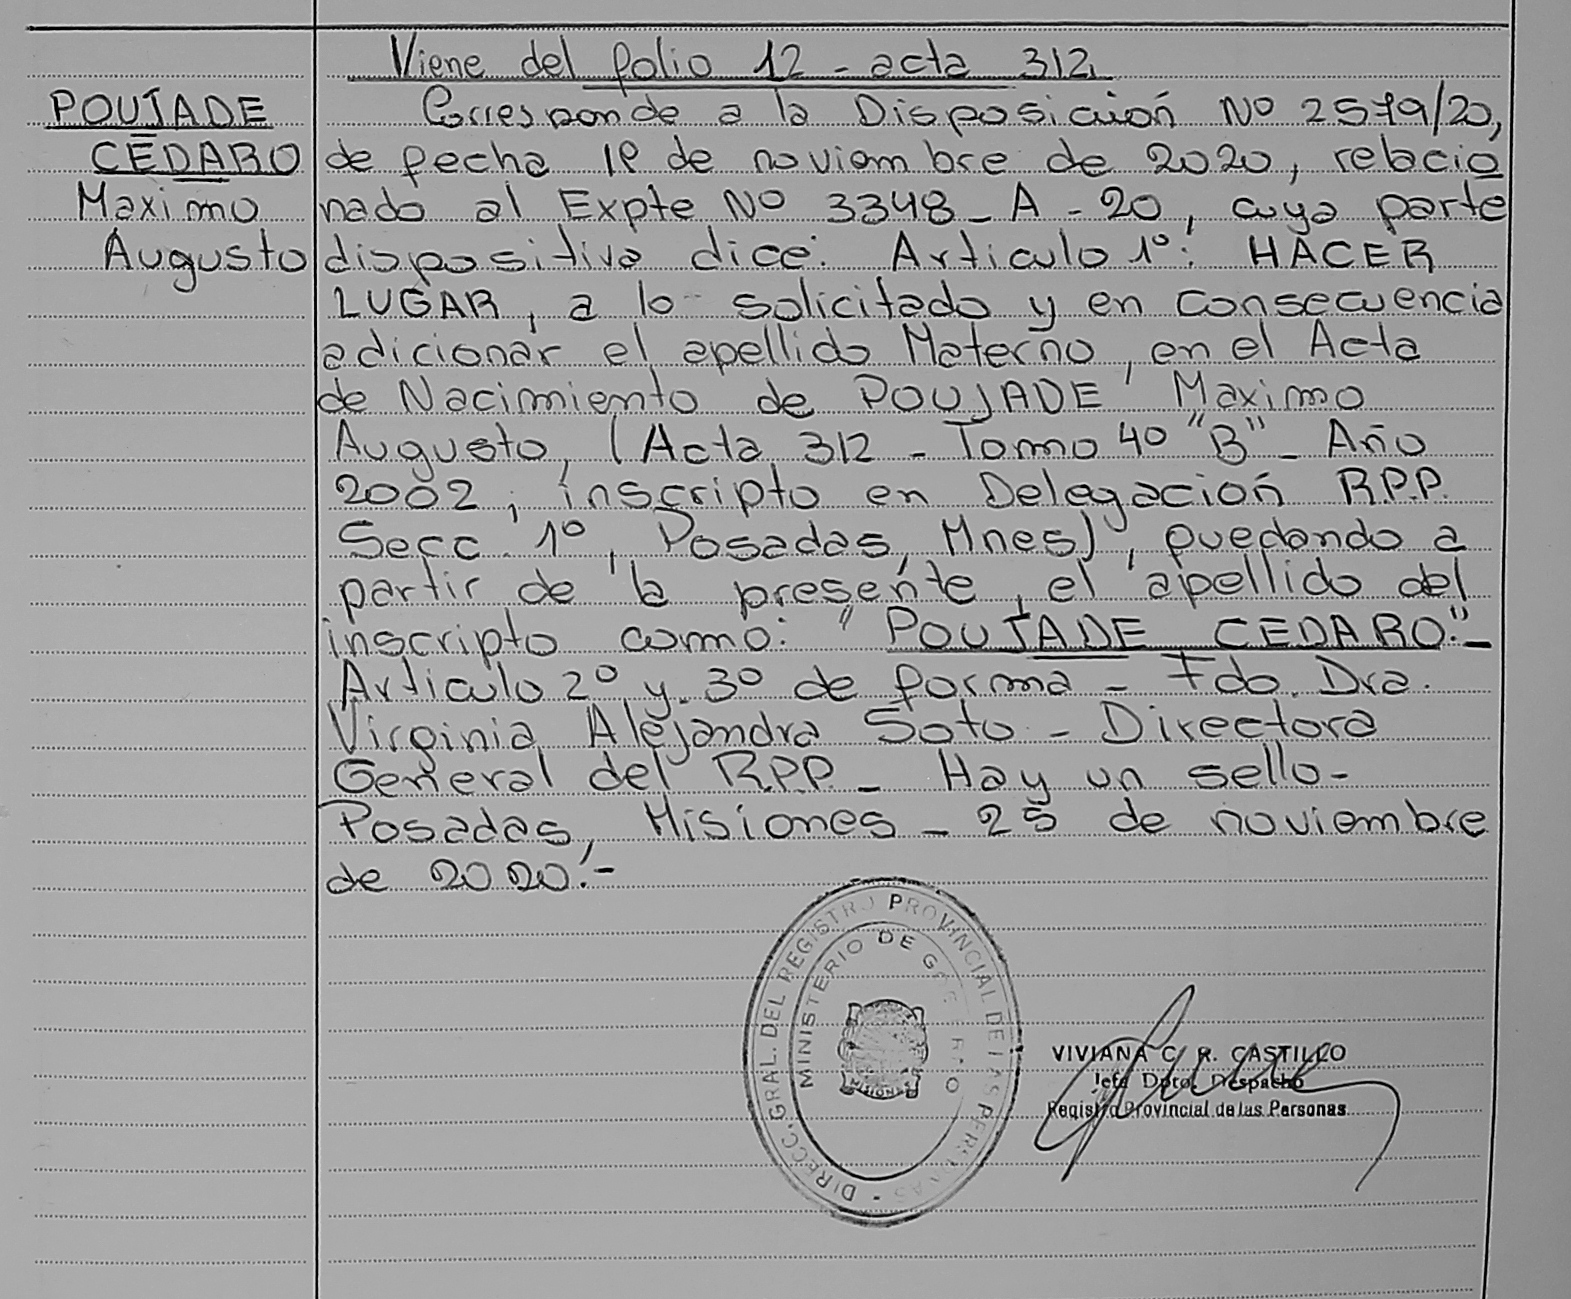 Viene del folio 12 - acta 312.
POUJADE
CEDARO
Maximo
Augusto
Corresponde a la Disposición Nº 2579/20,
de fecha 19 de noviembre de 2020, relacio
nado al Expte Nº 3348-A-20, cuya parte
dispositiva dice: Articulo 1º: HACER
LUGAR, a lo solicitado y en consecuencia
adicionar el apellido Materno, en el Acta
de Nacimiento de POUJADE, Maximo
Augusto, (Acta 312 - Tomo 40 "B" - Año
2002, inscripto en Delegación R.P.P.
Secc. 1º, Posadas, Mnes), quedando a
partir de la presente, el apellido del
inscripto como: "POUJADE CEDARO".-
Articulo 2º y 3º de forma - Fdo. Dra.
Virginia Alejandra Soto - Directora
General del R.P.P. - Hay un sello-
Posadas, Misiones - 25 de noviembre
de 2020.-
DIRECC. GRAL. DEL REGISTRO PROVINCIAL DE LAS PERSONAS -
MINISTERIO DE GOBIERNO
MISIONES
VIVIANA C. R. CASTILLO
Jefa Dpto. Despacho
Registro Provincial de las Personas